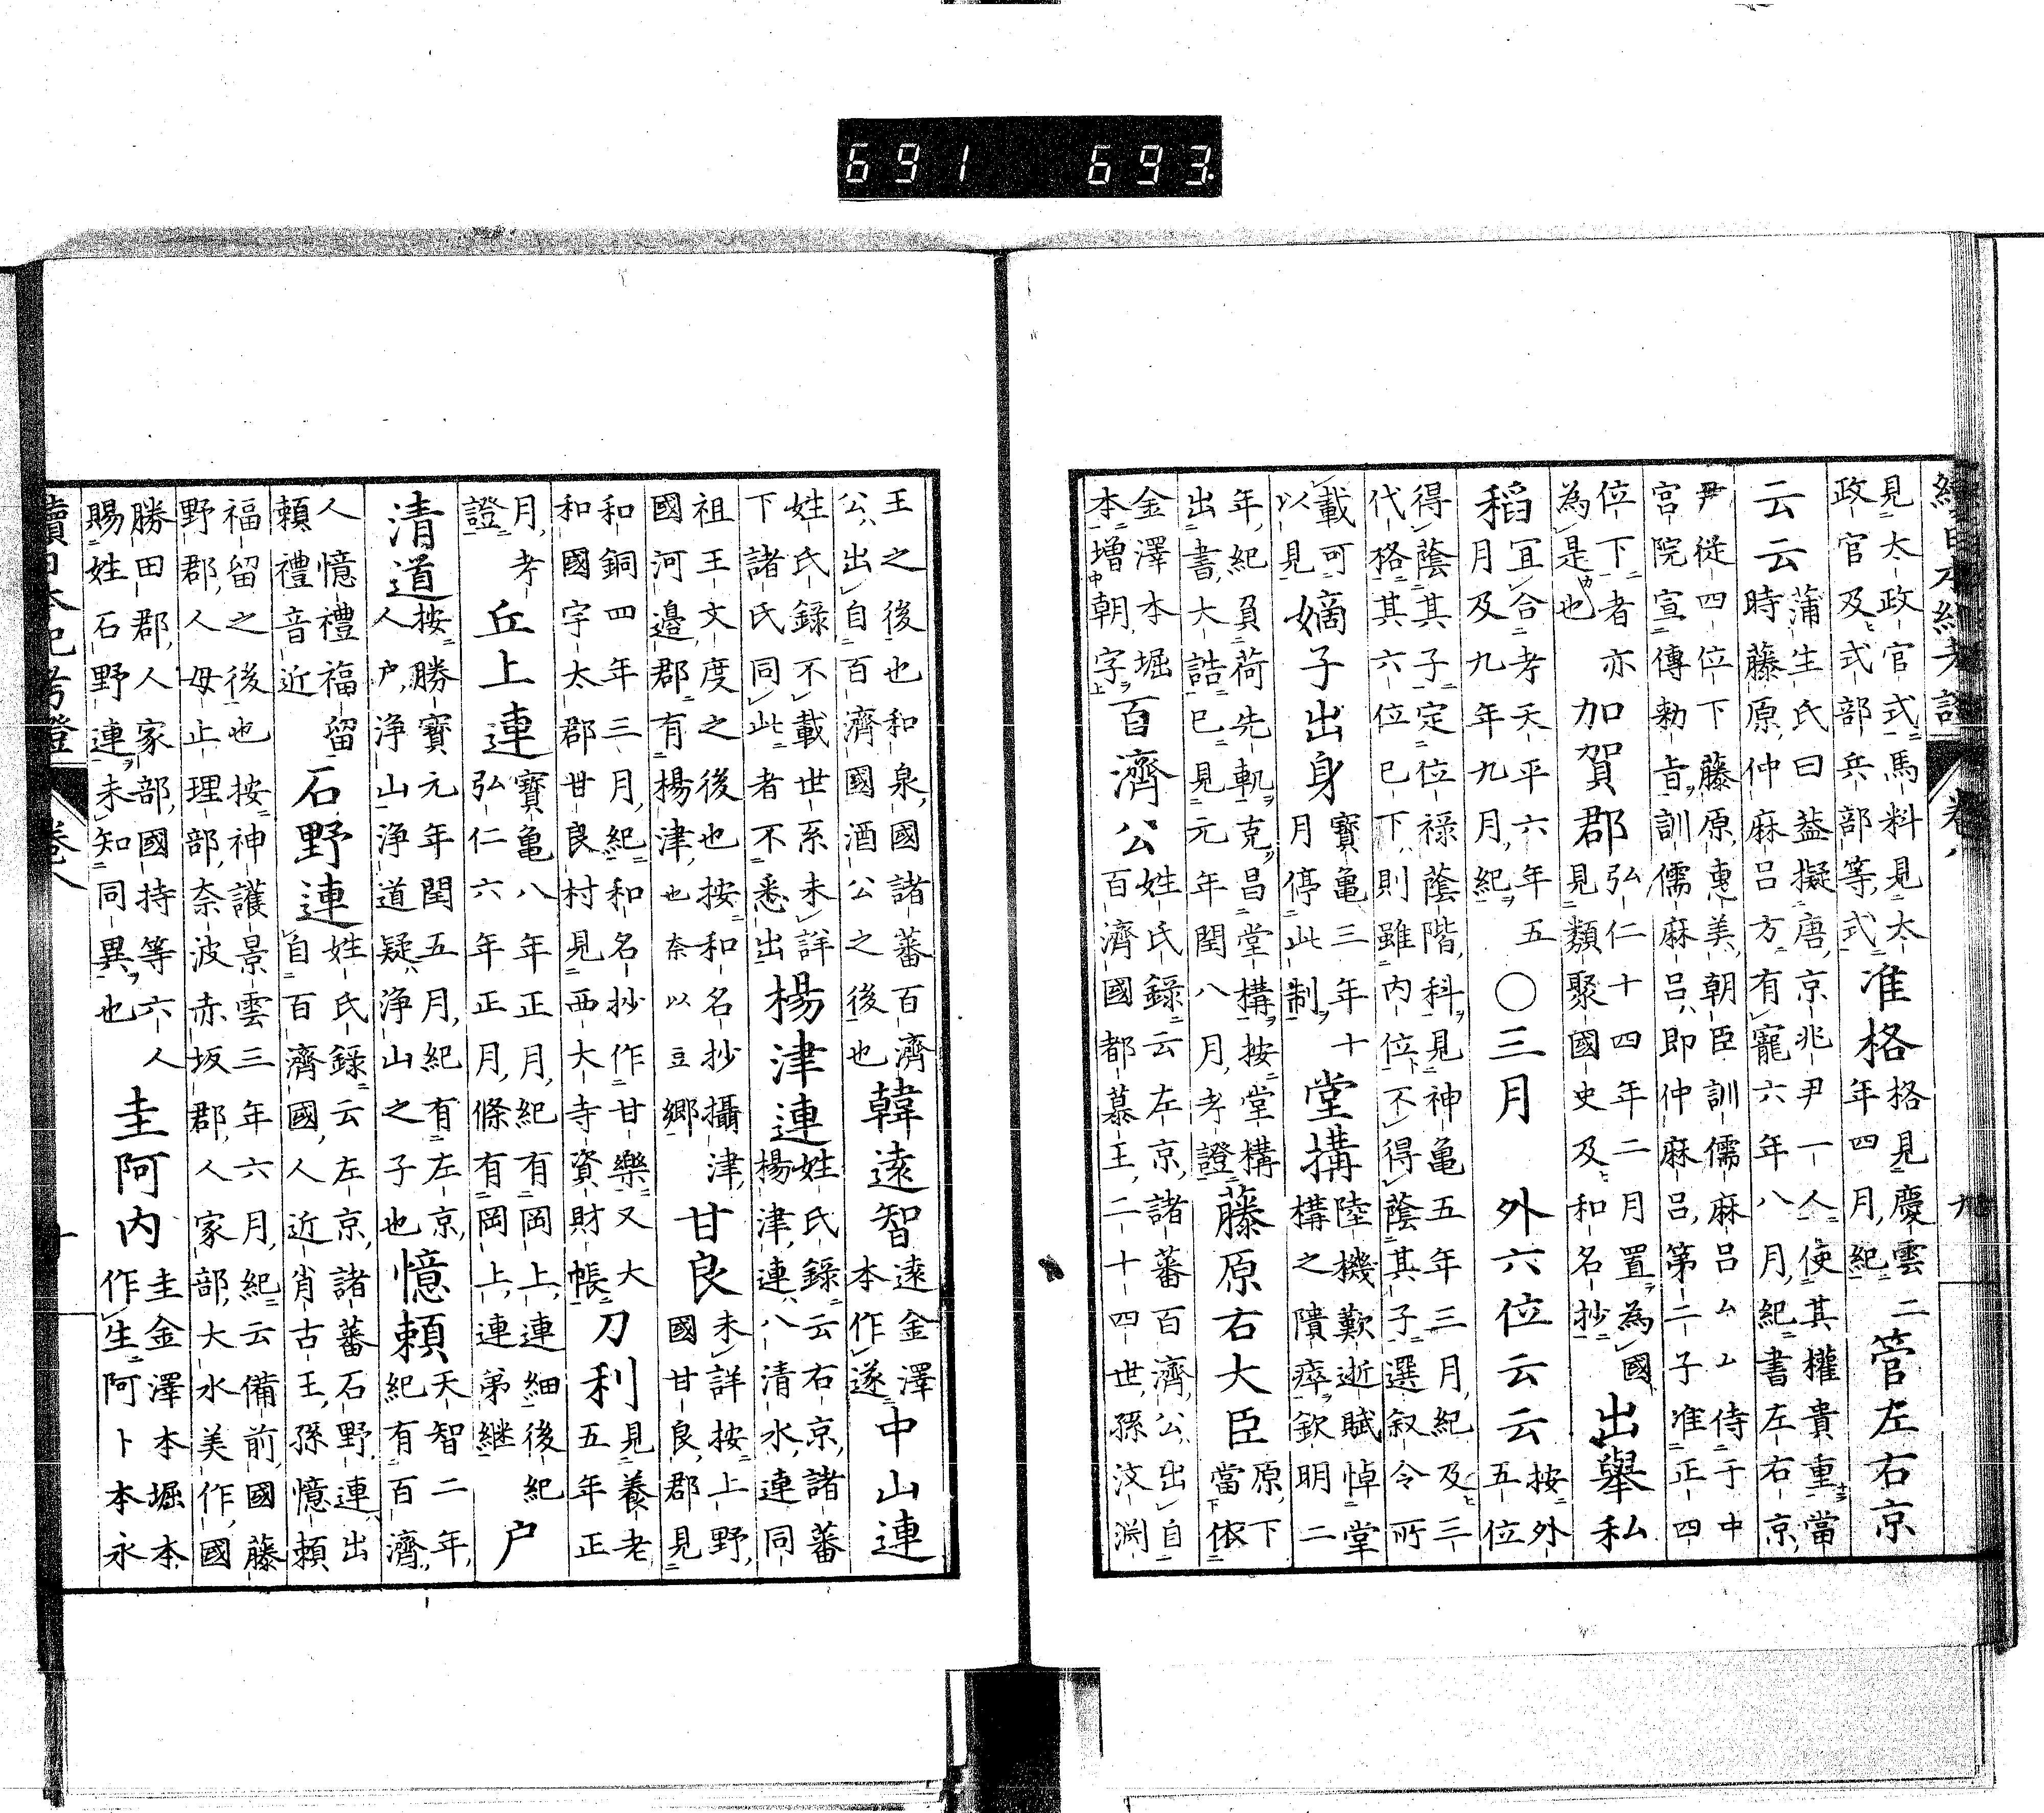 續日本紀考證 卷八 九
見太政官式馬料見太政官及式部兵部等式准格格見慶雲二年四月紀管左右京
云云蒲生氏曰益擬唐京兆尹一人使其權貴重當時藤原仲麻呂方有寵六年八月紀書左右京
尹從四位下藤原惠美朝臣訓儒麻呂ムム侍于中宮院宣傳勅旨訓儒麻呂即仲麻呂第二子准正四
位下者亦為是也加賀郡弘仁十四年二月置為國見類聚國史及和名抄出舉私
稻宜合考天平六年五月及九年九月紀○三月 外六位云云按外五位
得蔭其子定位祿蔭階科見神亀五年三月紀及三代格其六位已下則雖内位不得蔭其子選叙令所
載可以見嫡子出身寶亀三年十月停此制堂搆陸機歎逝賦悼堂構之隤瘁欽明二
年紀負荷先軌克昌堂構按堂構出書大誥已見元年閏八月考證藤原右大臣原下當依
金澤本堀本増朝字百濟公姓氏録云左京諸蕃百濟公出自百濟國都慕王二十四世孫汶淵
王之後也和泉國諸蕃百濟公出自百濟國酒公之後也韓遠智遠金澤本作遂中山連
姓氏録不載世系未詳下諸氏同此者不悉出楊津連姓氏録云右京諸蕃楊津連八清水連同
祖王文度之後也按和名抄攝津國河邊郡有楊津也奈以豆鄉甘良未詳按上野國甘良郡見
和銅四年三月紀和名抄作甘樂又大和國宇太郡甘良村見西大寺資財帳刀利見養老五年正
月考證丘上連寶亀八年正月紀有岡上連細後紀弘仁六年正月條有岡上連第継户
清道按勝寶元年閏五月紀有左京人户淨山淨道疑淨山之子也憶頼天智二年紀有百濟
人憶禮福留頼禮音近石野連姓氏録云左京諸蕃石野連出自百濟國人近肖古王孫憶頼
福留之後也按神護景雲三年六月紀云備前國藤野郡人母止理部奈波赤坂郡人家部大水美作國
勝田郡人家部國持等六人賜姓石野連未知同異也圭阿内圭金澤本堀本作生阿卜本永
續日本紀考證 卷八 十